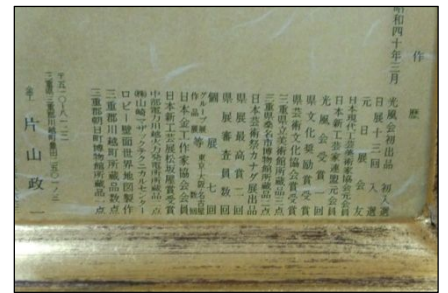 作歴
昭和四十年三月 光風会初出品 初入選
日展十三回入選
元日展会友
日本現代工芸美術家協会元会員
日本新工芸家連盟元会員
光風会受賞一回
県文化奨励賞受賞
県芸術文化協会賞受賞
三重県立美術館所蔵品二点
三重県桑名市博物館所蔵品一点
日本芸術祭カナダ展出品
県展最高賞二回
県展審査員数回
個展七回
グループ展 作品展 等 東京・大阪・名古屋 数回
日本金工作家協会会員
日本新工芸展松坂屋賞受賞
中部電力川越火力発電所所蔵品
㈱山崎マザックテクニカルセンター
ロビー壁面世界地図製作
三重郡川越町所蔵品数点
三重郡朝日町博物館所蔵品一点
〒五一〇-八一二二
三重県三重郡川越町豊田二五〇ノ三
片山政一